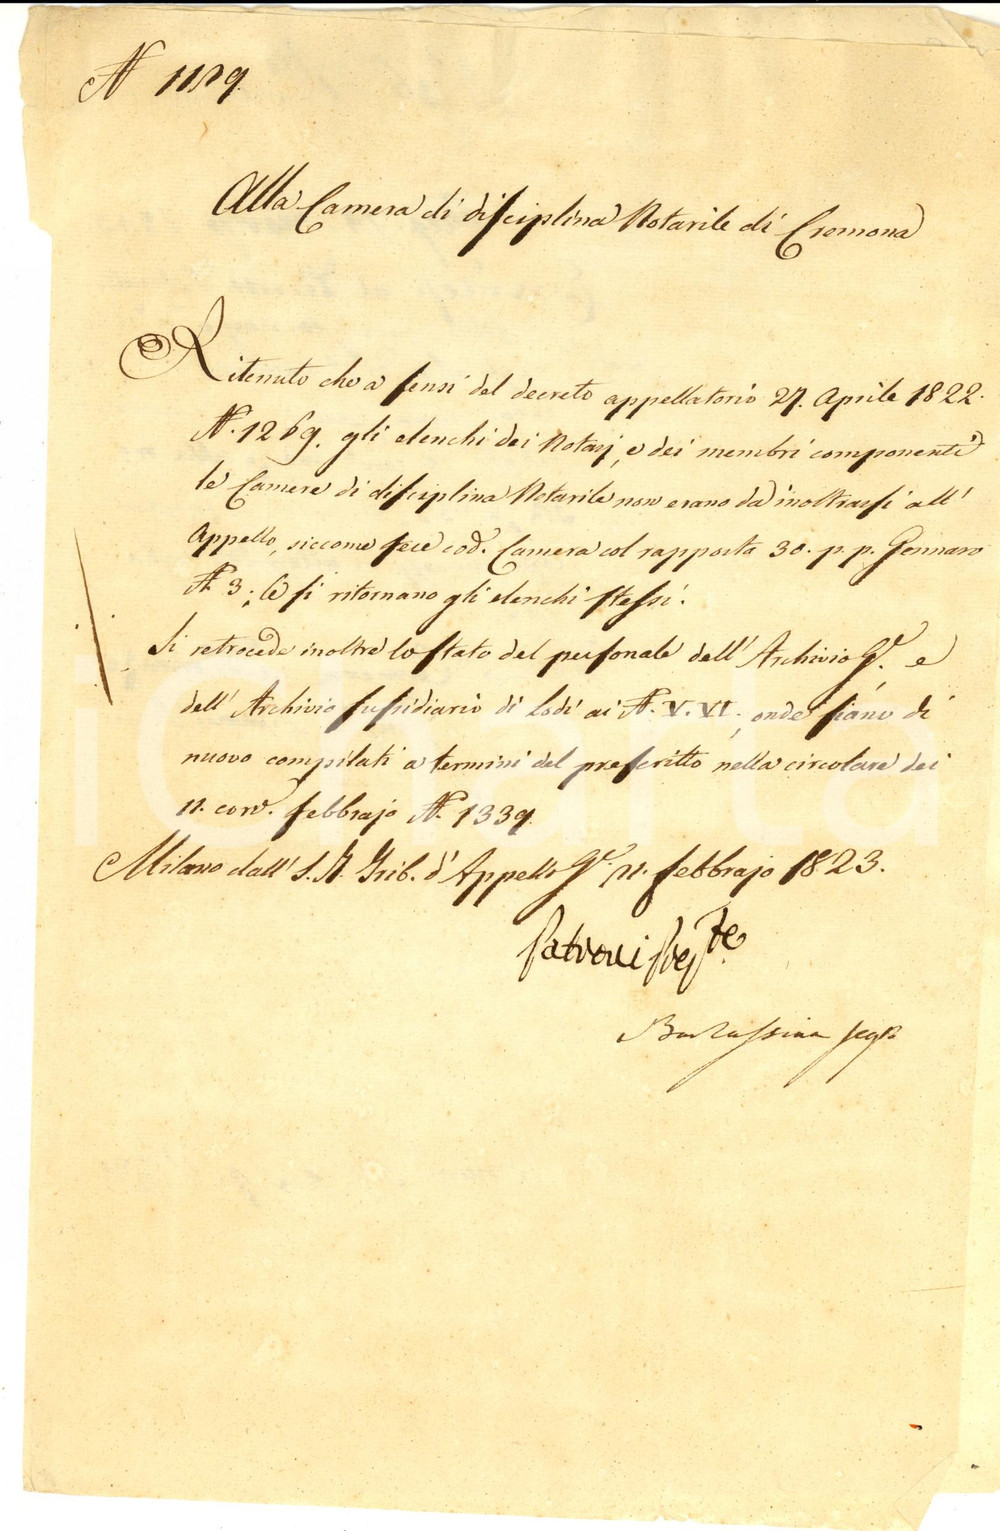 N 1129.
Alla Camera di disciplina Notarile di Cremona
Ritenuto che a sensi del decreto appellatorio 27. Aprile 1822.
N. 1269. gli elenchi dei Notaj, e dei membri componenti
le Camere di disciplina Notarile non erano da inoltrarsi all'
Appello, siccome fece cod. Camera col rapporto 30. p. p. Gennaro
N. 3; Le si ritornano gli elenchi stessi.
Si retrocede inoltre lo stato del personale dell' Archivio G.e, e
dell' Archivio sussidiario di Lodi ai N. V. VI., onde siano di
nuovo compilati a termini del prescritto nella circolare dei
11. corr. febbrajo N. 1339.
Milano dall' I. R. Trib. d' Appello G.e 21. febbrajo 1823.
Patroni Pres.te
segr.